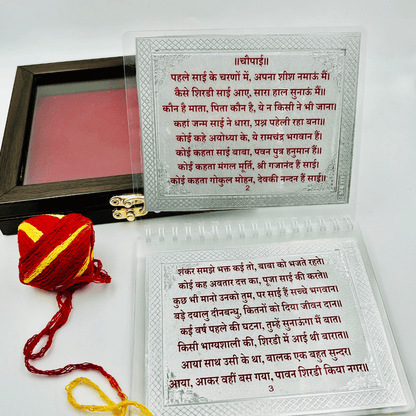 ॥चौपाई॥
पहले साई के चरणों में, अपना शीश नमाऊं मैं।
कैसे शिरडी साई आए, सारा हाल सुनाऊं मैं॥
कौन है माता, पिता कौन है, ये न किसी ने भी जाना।
कहां जन्म साई ने धारा, प्रश्न पहेली रहा बना॥
कोई कहे अयोध्या के, ये रामचंद्र भगवान हैं।
कोई कहता साई बाबा, पवन पुत्र हनुमान हैं॥
कोई कहता मंगल मूर्ति, श्री गजानंद हैं साई।
कोई कहता गोकुल मोहन, देवकी नन्दन हैं साई॥
2
शंकर समझे भक्त कई तो, बाबा को भजते रहते।
कोई कह अवतार दत्त का, पूजा साई की करते॥
कुछ भी मानो उनको तुम, पर साई हैं सच्चे भगवान।
बड़े दयालु दीनबन्धु, कितनों को दिया जीवन दान॥
कई वर्ष पहले की घटना, तुम्हें सुनाऊंगा मैं बात।
किसी भाग्यशाली की, शिरडी में आई थी बारात॥
आया साथ उसी के था, बालक एक बहुत सुन्दर।
आया, आकर वहीं बस गया, पावन शिरडी किया नगर॥
3